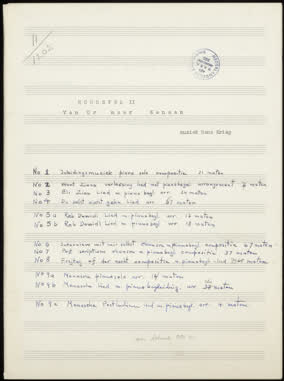 II
1202
HOOFSTUK II
Van Ur naar Kanaan
muziek Hans Krieg
No 1 Inleidingsmuziek piano solo compositie 21 maten
No 2 Want Zions verlossing lied met pianobegel. arrangement maten
No 3 Eli Zion Lied m. piano begl arr. 24 maten
No 4 Du sollst nicht gehn Lied arr 61 maten
No 5a Reb Dowidl Lied m pianobegl. arr. 16 maten
No 5b Reb Dowidl Lied m pianobegl arr. 18 maten
No 6 Interview mit mir selbst Chanson m pianobegl compositie 67 maten
No 7 Post scriptum chanson m pianobegl compositie 37 maten
No 8 Freitag auf der nacht compositie m pianobegl lied maten
No 9a Menascha pianosolo arr. 18 maten
No 9b Menascha lied m. piano begeleiding arr. maten
No 9a Menascha Postludium lied m pianobegl arr. 4 maten